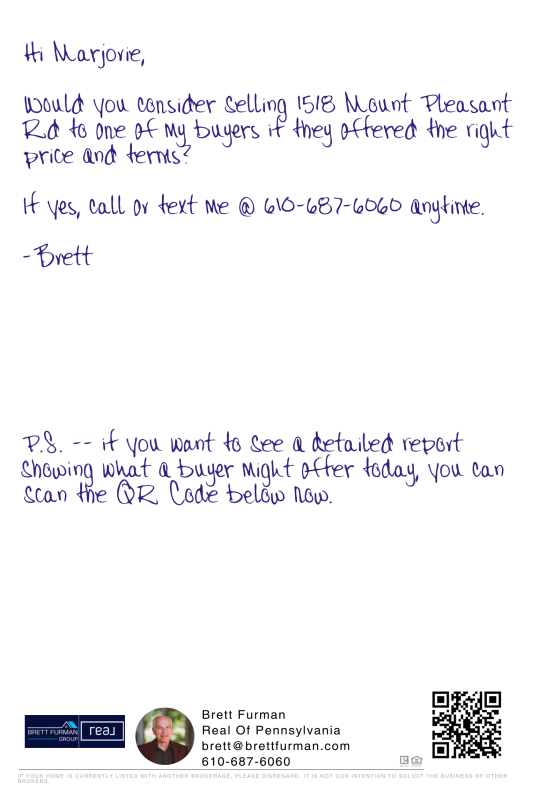 Hi Marjorie,
Would you consider selling 1518 Mount Pleasant
Rd to one of my buyers if they offered the right
price and terms?
If yes, call or text me @ 610-687-6060 anytime.
-Brett
P.S. -- if you want to see a detailed report
showing what a buyer might offer today, you can
scan the QR Code below now.
BRETT FURMAN
GROUP
real
Brett Furman
Real Of Pennsylvania
brett@brettfurman.com
610-687-6060
IF YOUR HOME IS CURRENTLY LISTED WITH ANOTHER BROKERAGE, PLEASE DISREGARD. IT IS NOT OUR INTENTION TO SOLICIT THE BUSINESS OF OTHER
BROKERS.